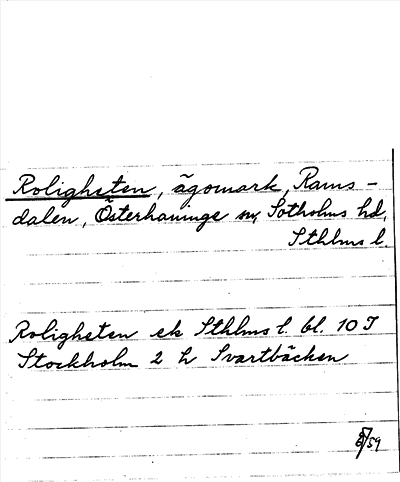 Roligheten, ägomark, Rams-
dalen, Österhaninge sn, Sotholms hd,
Sthlms l.
Roligheten ek Sthlms l. bl. 10 I
Stockholm 2 h Svartbäcken
/59